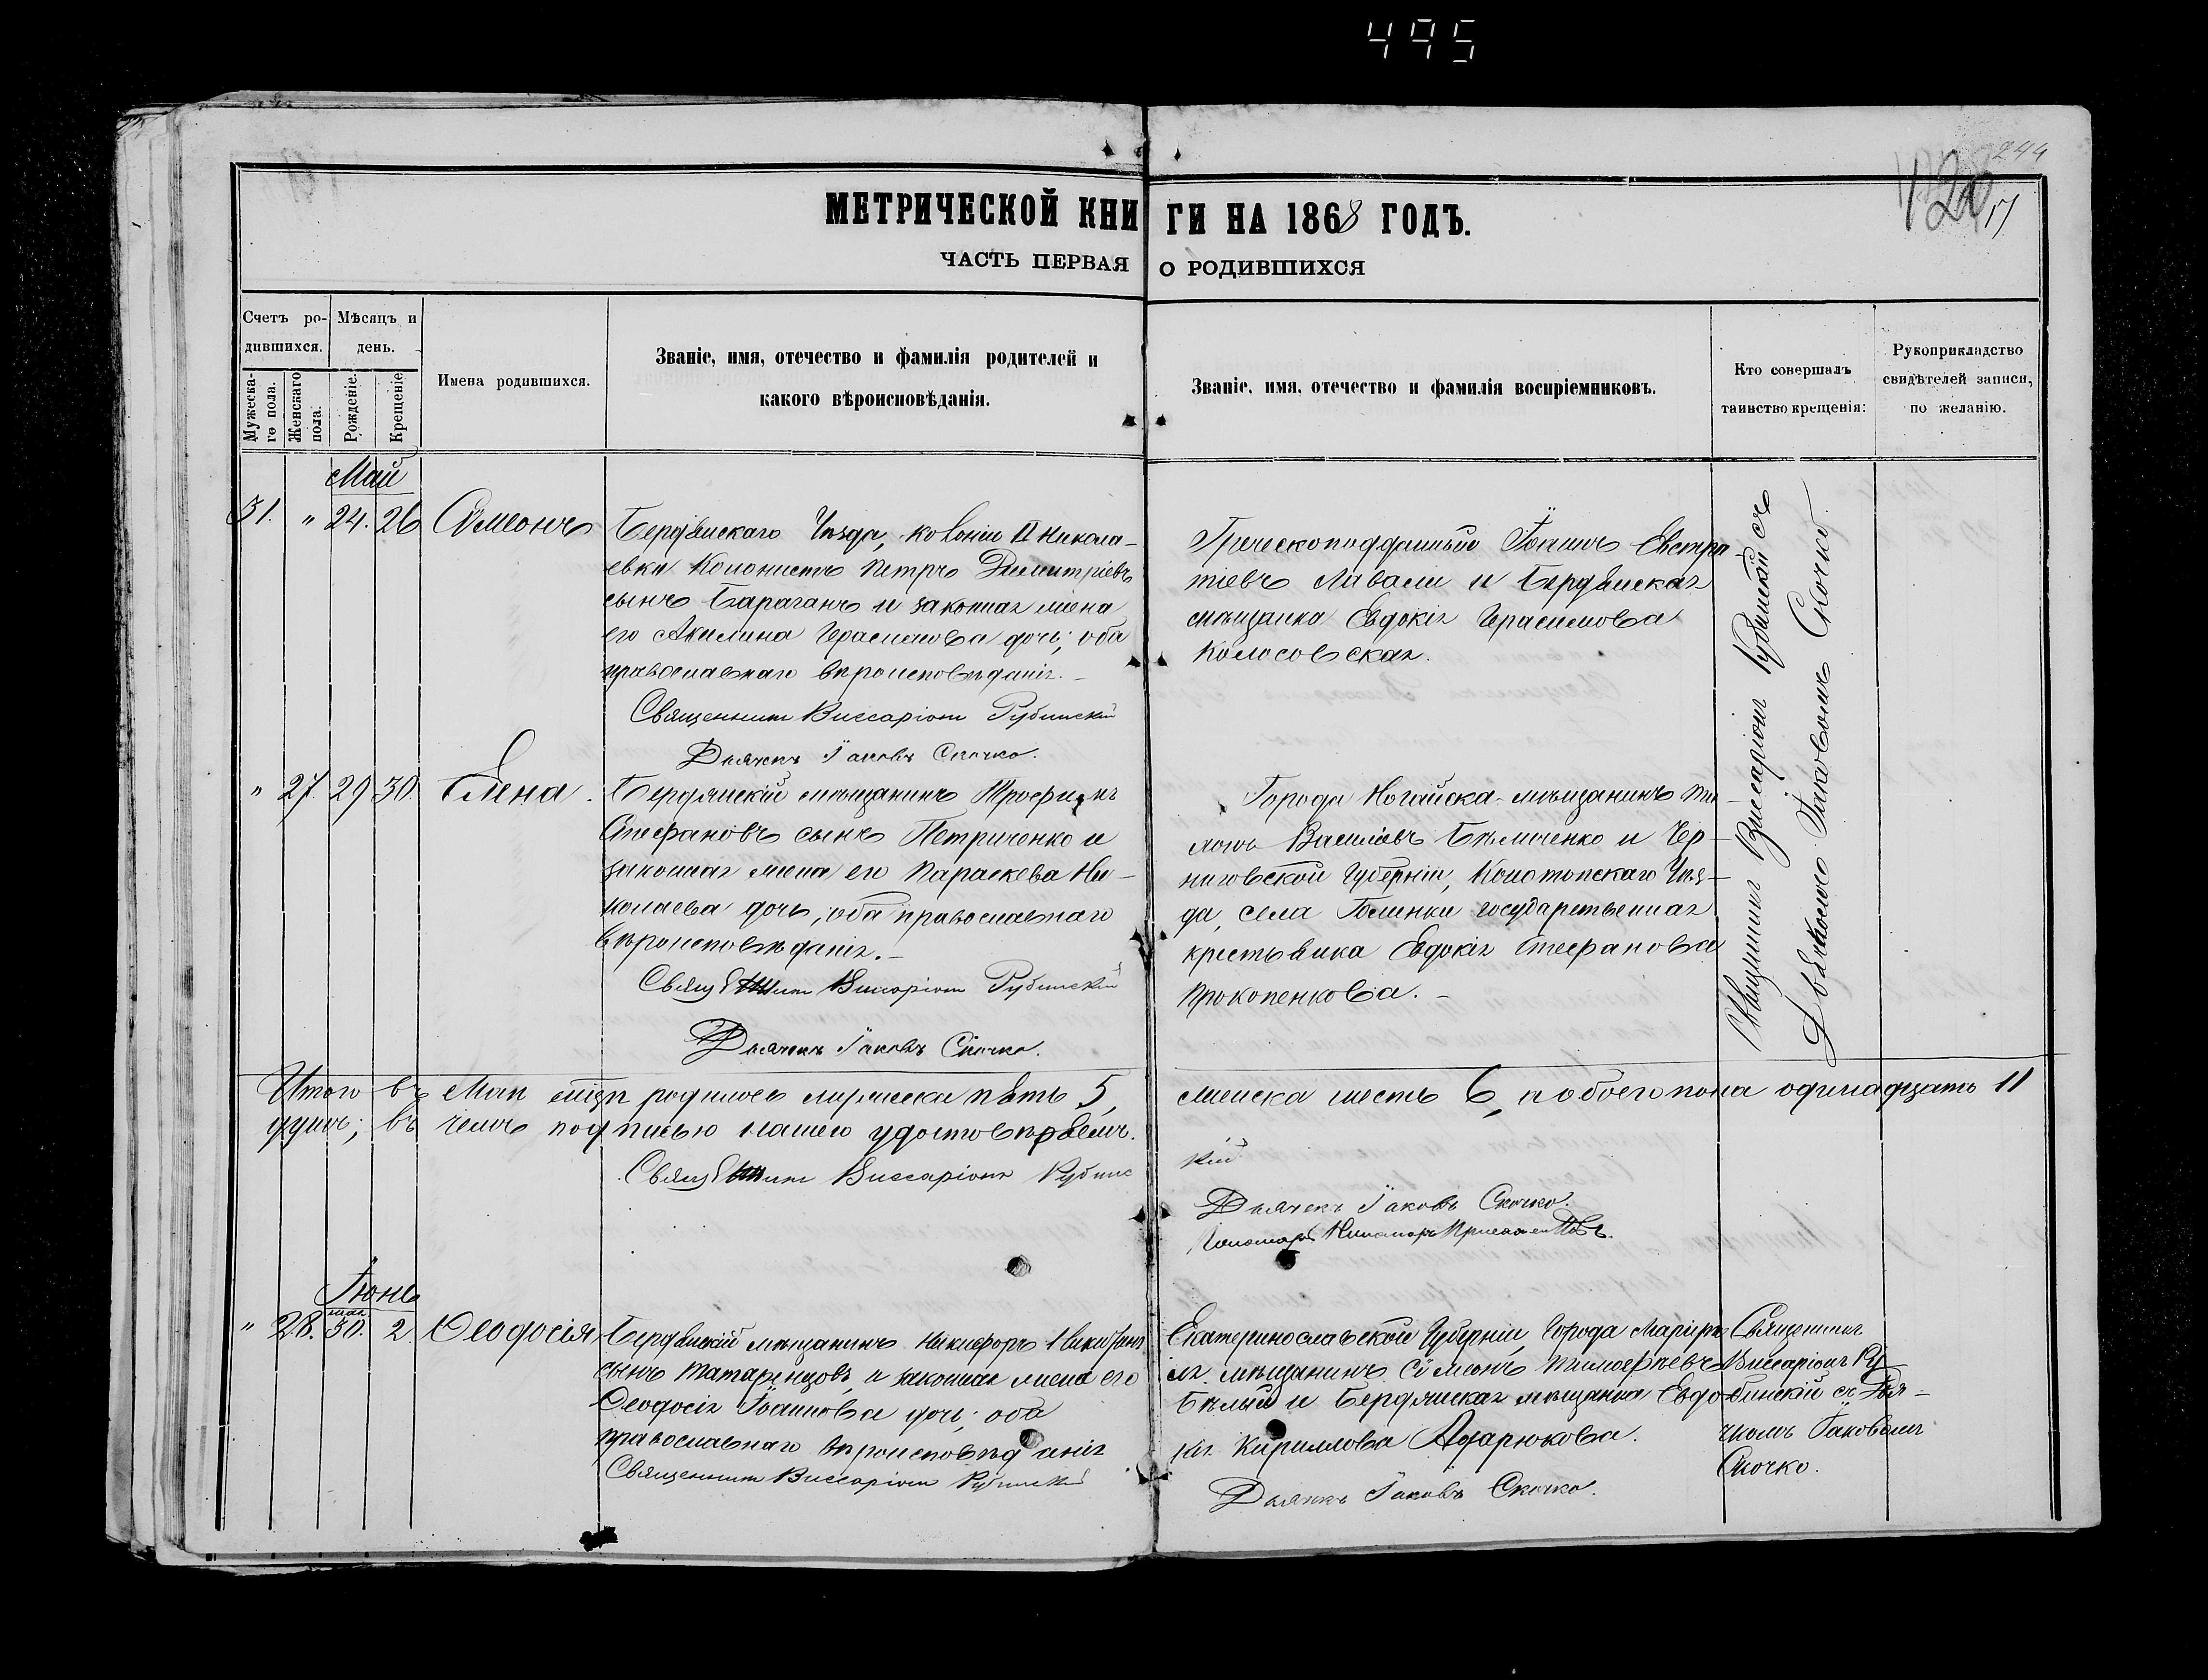 495
244
120
17
МЕТРИЧЕСКОЙ КНИГИ НА 1868 ГОДЪ.
ЧАСТЬ ПЕРВАЯ О РОДИВШИХСЯ
Счетъ ро-
дившихся.
Мужеска-
го пола.
Женскаго
пола.
Мѣсяцъ и
день.
Рожденіе.
Крещеніе
Имена родившихся.
Званіе, имя, отечество и фамилія родителей и
какого вѣроисповѣданія.
Званіе, имя, отечество и фамилія воспріемниковъ.
Кто совершалъ
таинство крещенія:
Рукоприкладство
свидѣтелей записи,
по желанію.
Май
31. " 24. 26 Сѵмеонъ
Бердянскаго Уѣзда, колоніи II Никола-
евки Колонистъ Петръ Димитріевъ
сынъ Бараганъ и законная жена
его Акилина Герасимова дочь; оба
православнаго вѣроисповѣданія.-
Священникъ Виссаріонъ Рубинскій
Дьячекъ Іаковъ Скочко.
Греческоподданный Іоаннъ Евстра-
тіевъ Ливали и Бердянская
мѣщанка Евдокія Герасимова
Колосовская.
Священникъ Виссаріонъ Рубинскій съ
Дьячкомъ Іаковомъ Скочко.
" 27. 29 30. Елена.
Бердянскій мѣщанинъ Трофимъ
Стефановъ сынъ Петриченко и
законная жена его Параскева Ни-
колаева дочь, оба православнаго
вѣроисповѣданія.-
Священникъ Виссаріонъ Рубинскій
Дьячекъ Іаковъ Скочко.
Города Ногайска мѣщанинъ
Василіевъ Бѣличенко и Чер-
ниговской Губерніи, Конотопскаго Уѣз-
да, села Голенки государственная
крестьянка Евдокія Стефанова
Прокопенкова.-
Итого въ Маѣ мцѣ родилось мужеска пять 5, женска шесть 6, а обоего пола одинадцать 11
душъ; въ чемъ подписью нашею удостовѣряемъ.
Священникъ Виссаріонъ Рубинскій
Дьячекъ Іаковъ Скочко.
Пономарь
Іюнь
мая
" 28. 30. 2. Ѳеодосія
Бердянскій мѣщанинъ Никифоръ
сынъ Татаренцовъ, и законная жена его
Ѳеодосія Іоаннова дочь; оба
православнаго вѣроисповѣданія
Священникъ Виссаріонъ Рубинскій
Екатеринославской Губерніи, Города Маріупо
ля мѣщанинъ Сѵмеонъ Тимоѳеевъ
Бѣлый и Бердянская мѣщанка Евдо-
кія Кириллова Адарюкова.
Дьячекъ Іаковъ Скочко.
Священникъ
Виссаріонъ Ру-
бинскій съ Дья-
чкомъ Іаковомъ
Скочко.